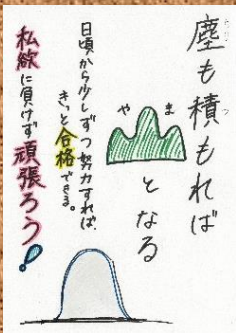 塵も積もれば
やま
となる
日頃から少しずつ努力すれば、
きっと合格できる。
私欲に負けず頑張ろう!